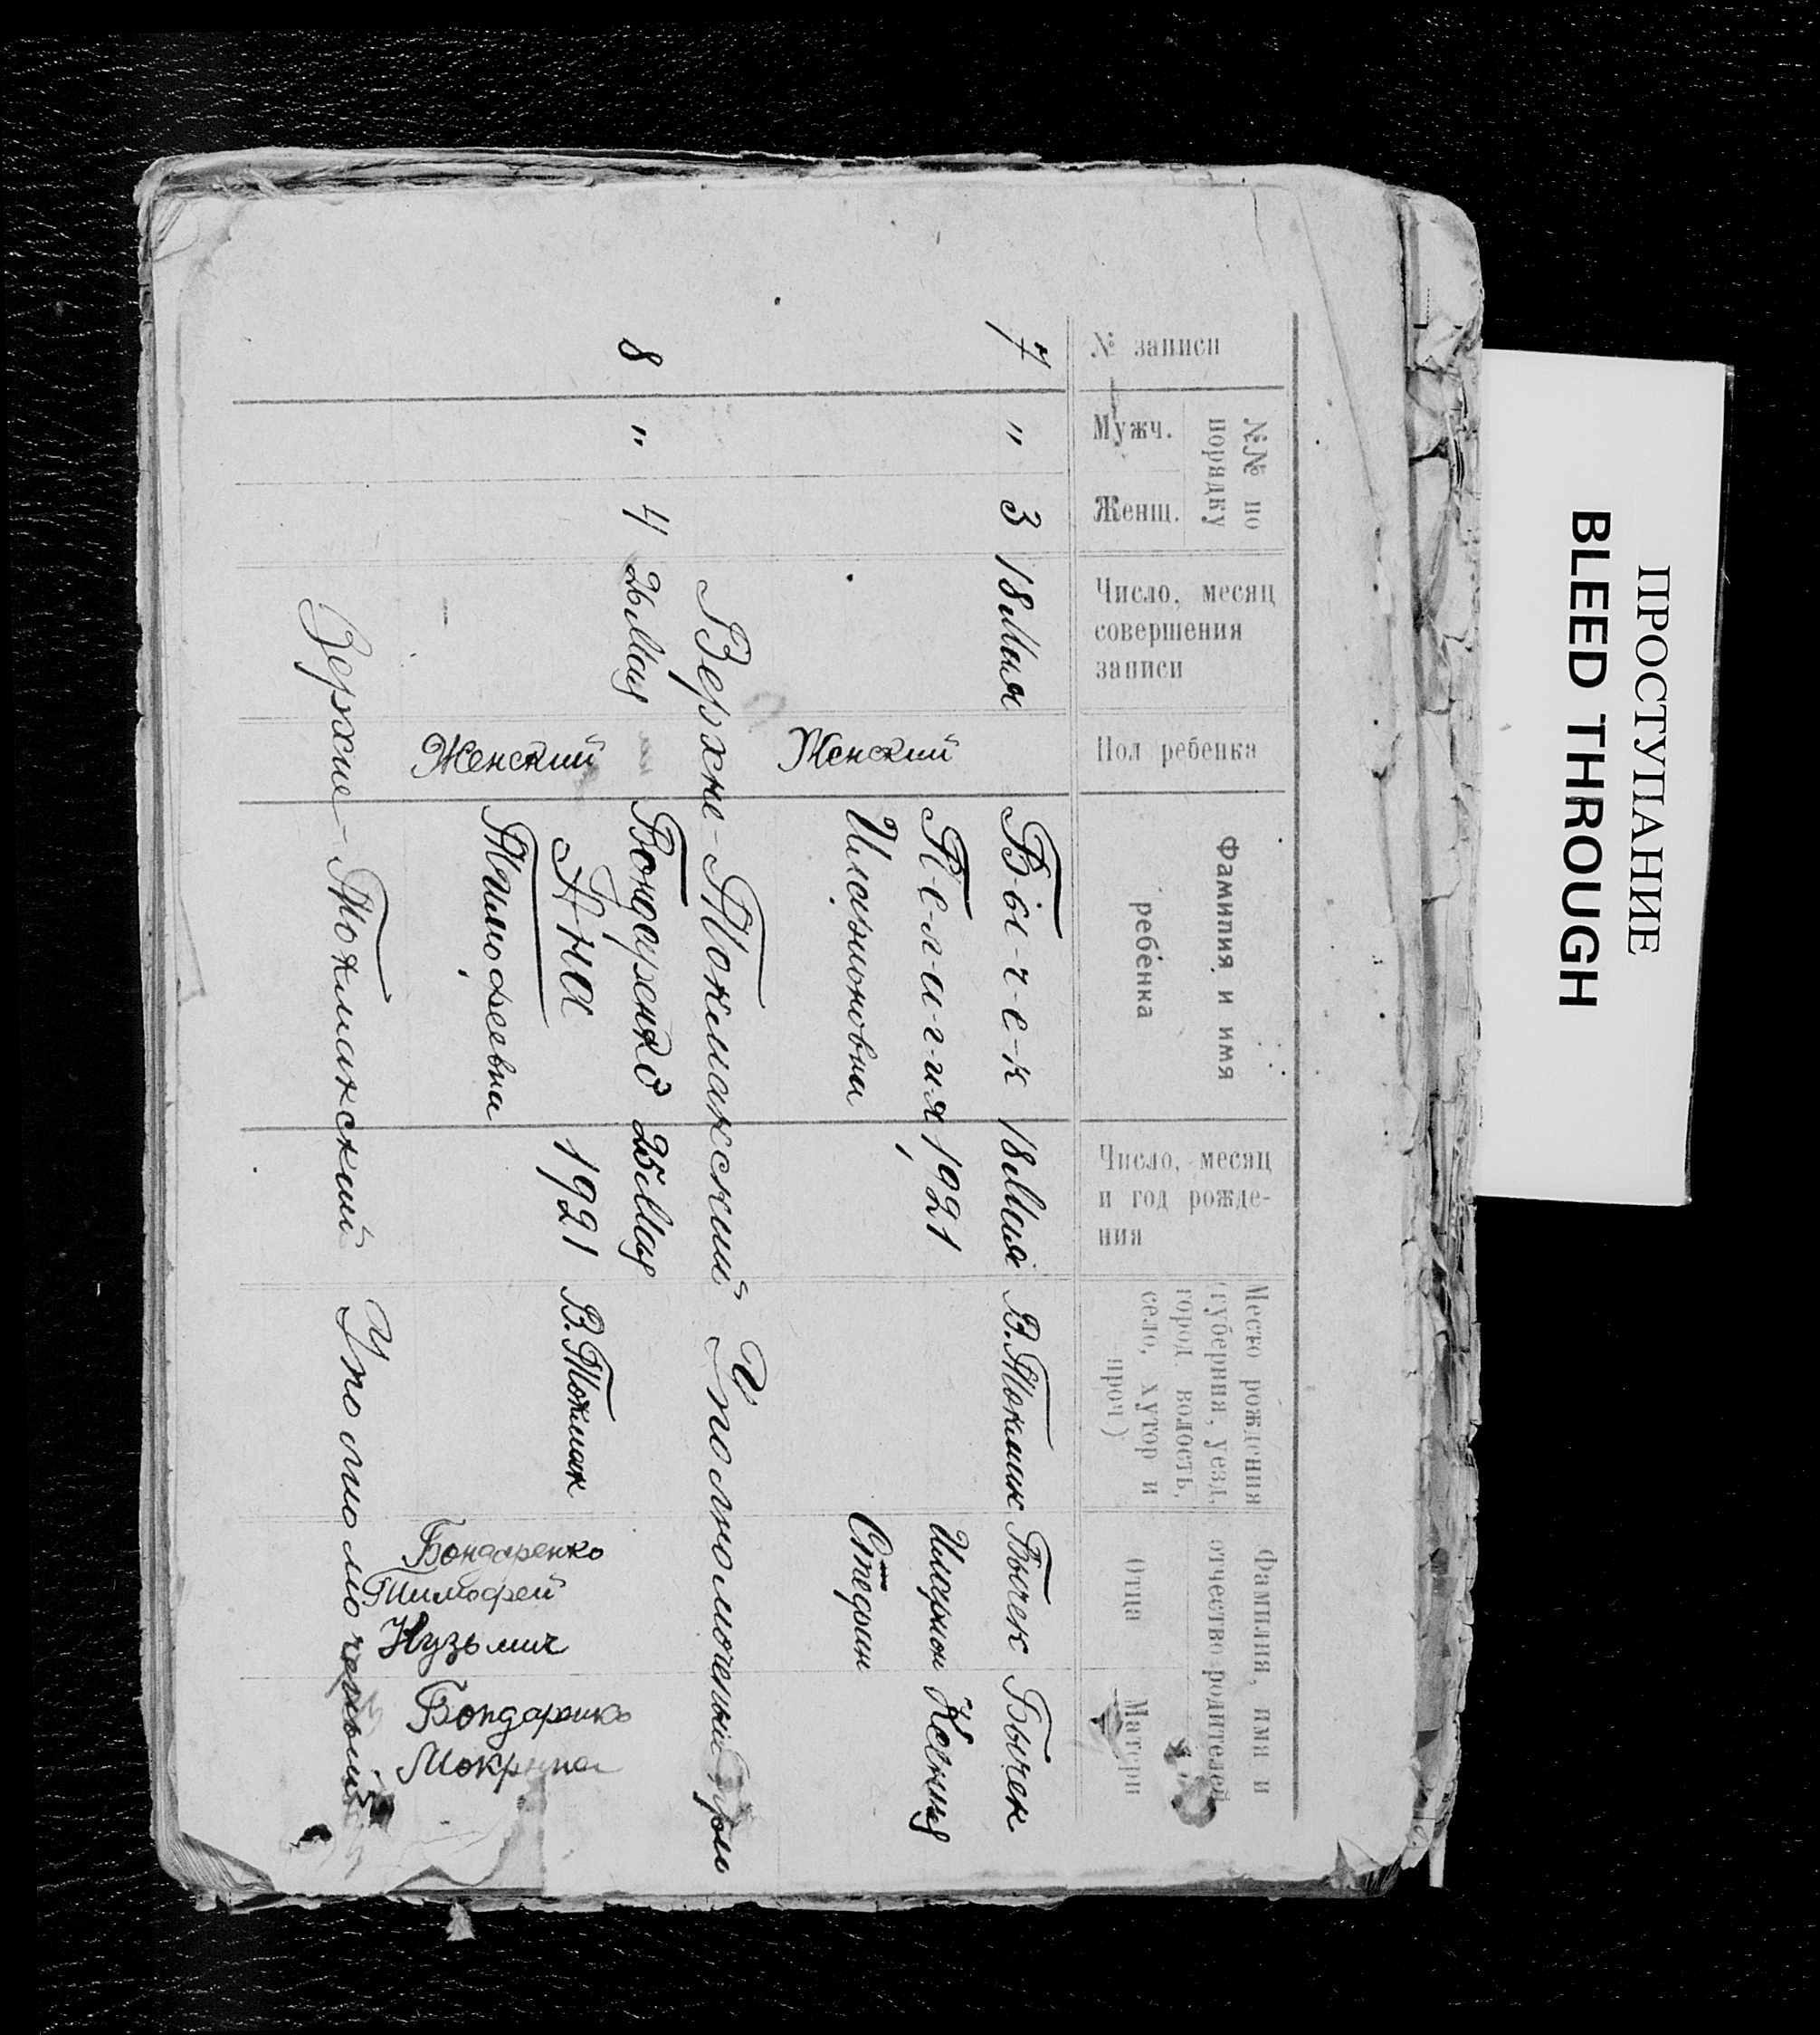 ПРОСТУПАНИЕ
BLEED THROUGH
№ записи
№№ по
порядку
Мужч.
Женщ.
Число, месяц
совершения
записи
Пол ребенка
Фамилия и имя
ребенка
Число, месяц
и год рожде-
ния
Место рождения
(губерния, уезд,
город волость,
село, хутор и
проч)
Фамилия, имя и
отчество родителей
Отца
Матери
7
"
3
18 Мая
Женский
Б-ы-ч-е-к
П-е-л-а-г-и-я
Иларионовна
18 Мая
1921
В. Токмак
Бычек
Иларион
Стефан
Бычек
Ксения
Верхне-Токмакский Уполномоченый
8
"
4
26 Мая
Женский
Бондаренко
Ана
Тимофеевна
25 Мая
1921
В. Токмак
Бондаренко
Тимофей
Кузьмич
Бондаренко
Мокрина
Верхне-Токмакский Уполномоченый